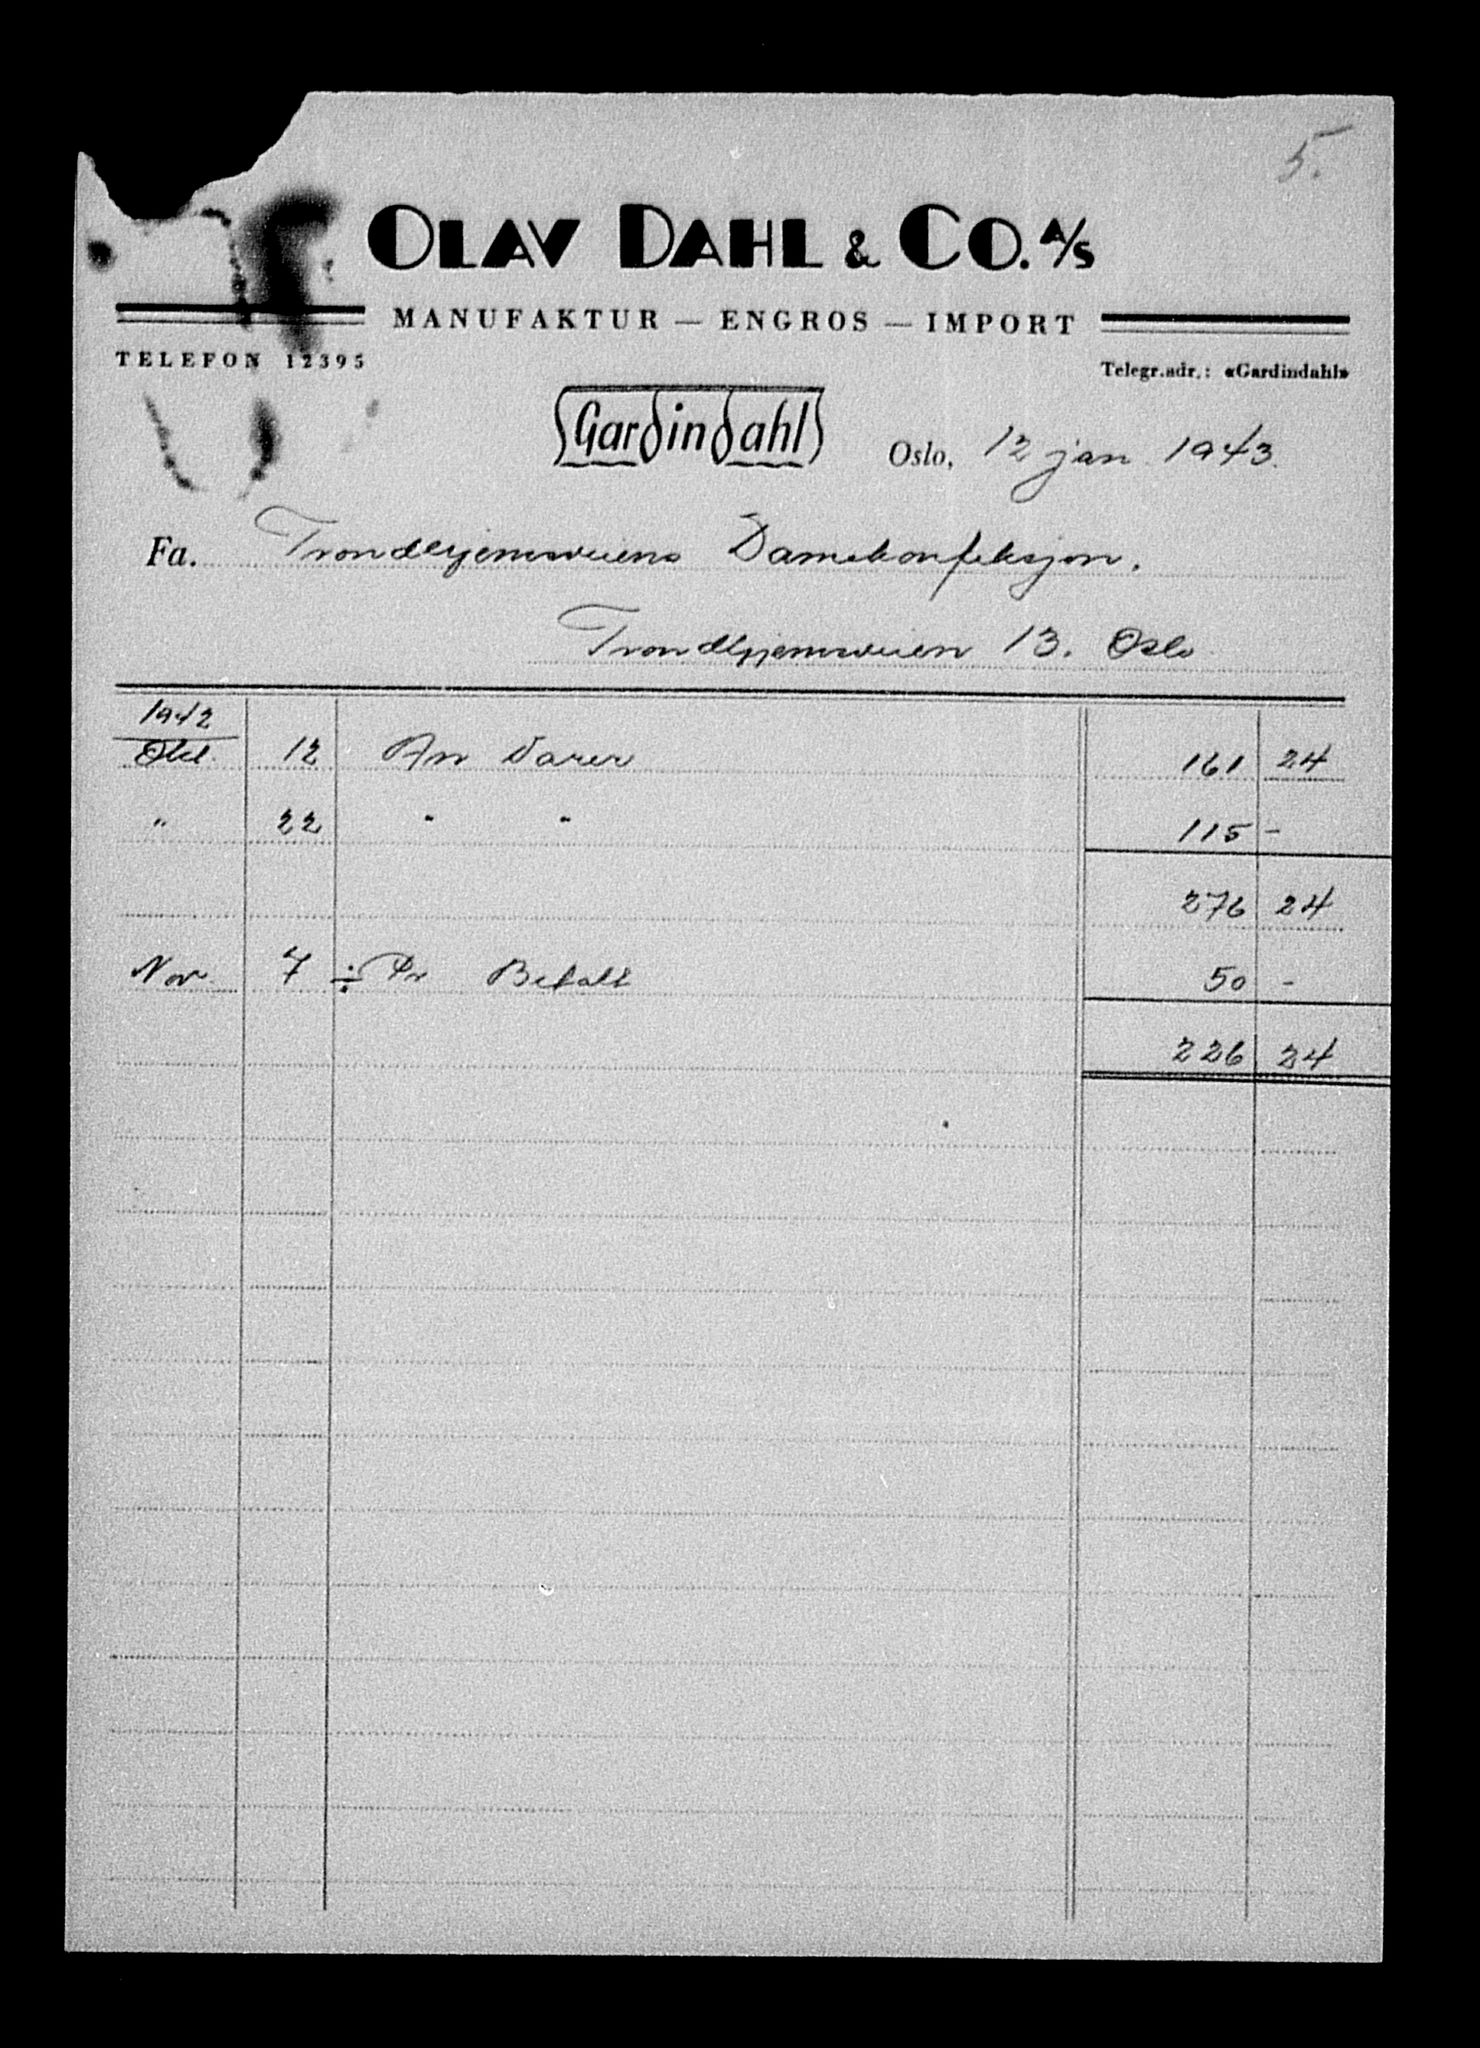 5.
OLAV DAHL & CO. A/S
MANUFAKTUR — ENGROS — IMPORT
TELEFON 12395
Telegr.adr.: «Gardindahl»
Gardindahl
Oslo, 12 jan. 1943.
Fa. Trondhjemsveiens Damekonfeksjon.
Trondhjemsveien 13. Oslo
1942
Okt. 12 An Varer 161 24
" 22 " " 115 -
276 24
Nov. 7 ÷ Pr Betalt 50 -
226 24